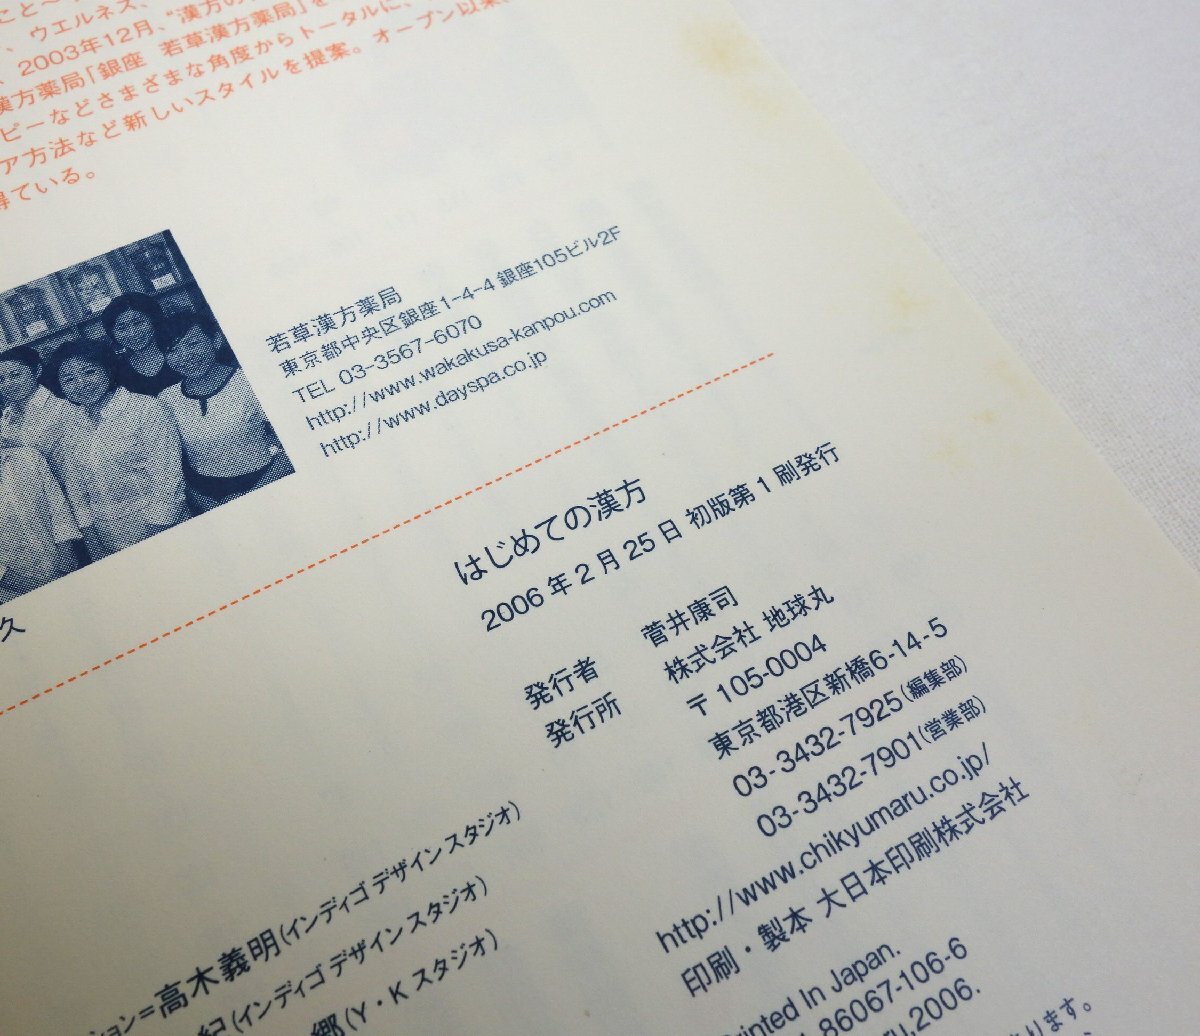 こと～
、ウエルネス、
、2003年12月、“漢方の
漢方薬局「銀座 若草漢方薬局」を
ピーなどさまざまな角度からトータルに、
ア方法など新しいスタイルを提案。オープン以来、
得ている。
若草漢方薬局
東京都中央区銀座1-4-4 銀座105ビル2F
TEL 03-3567-6070
http://www.wakakusa-kanpou.com
http://www.dayspa.co.jp
久
はじめての漢方
2006年2月25日 初版第1刷発行
発行者 菅井康司
発行所 株式会社 地球丸
〒105-0004
東京都港区新橋6-14-5
03-3432-7925(編集部)
03-3432-7901(営業部)
http://www.chikyumaru.co.jp/
印刷・製本 大日本印刷株式会社
ション＝高木義明(インディゴ デザイン スタジオ)
紀(インディゴ デザイン スタジオ)
郷(Y・K スタジオ)
Printed In Japan.
86067-106-6
2006.
ります。